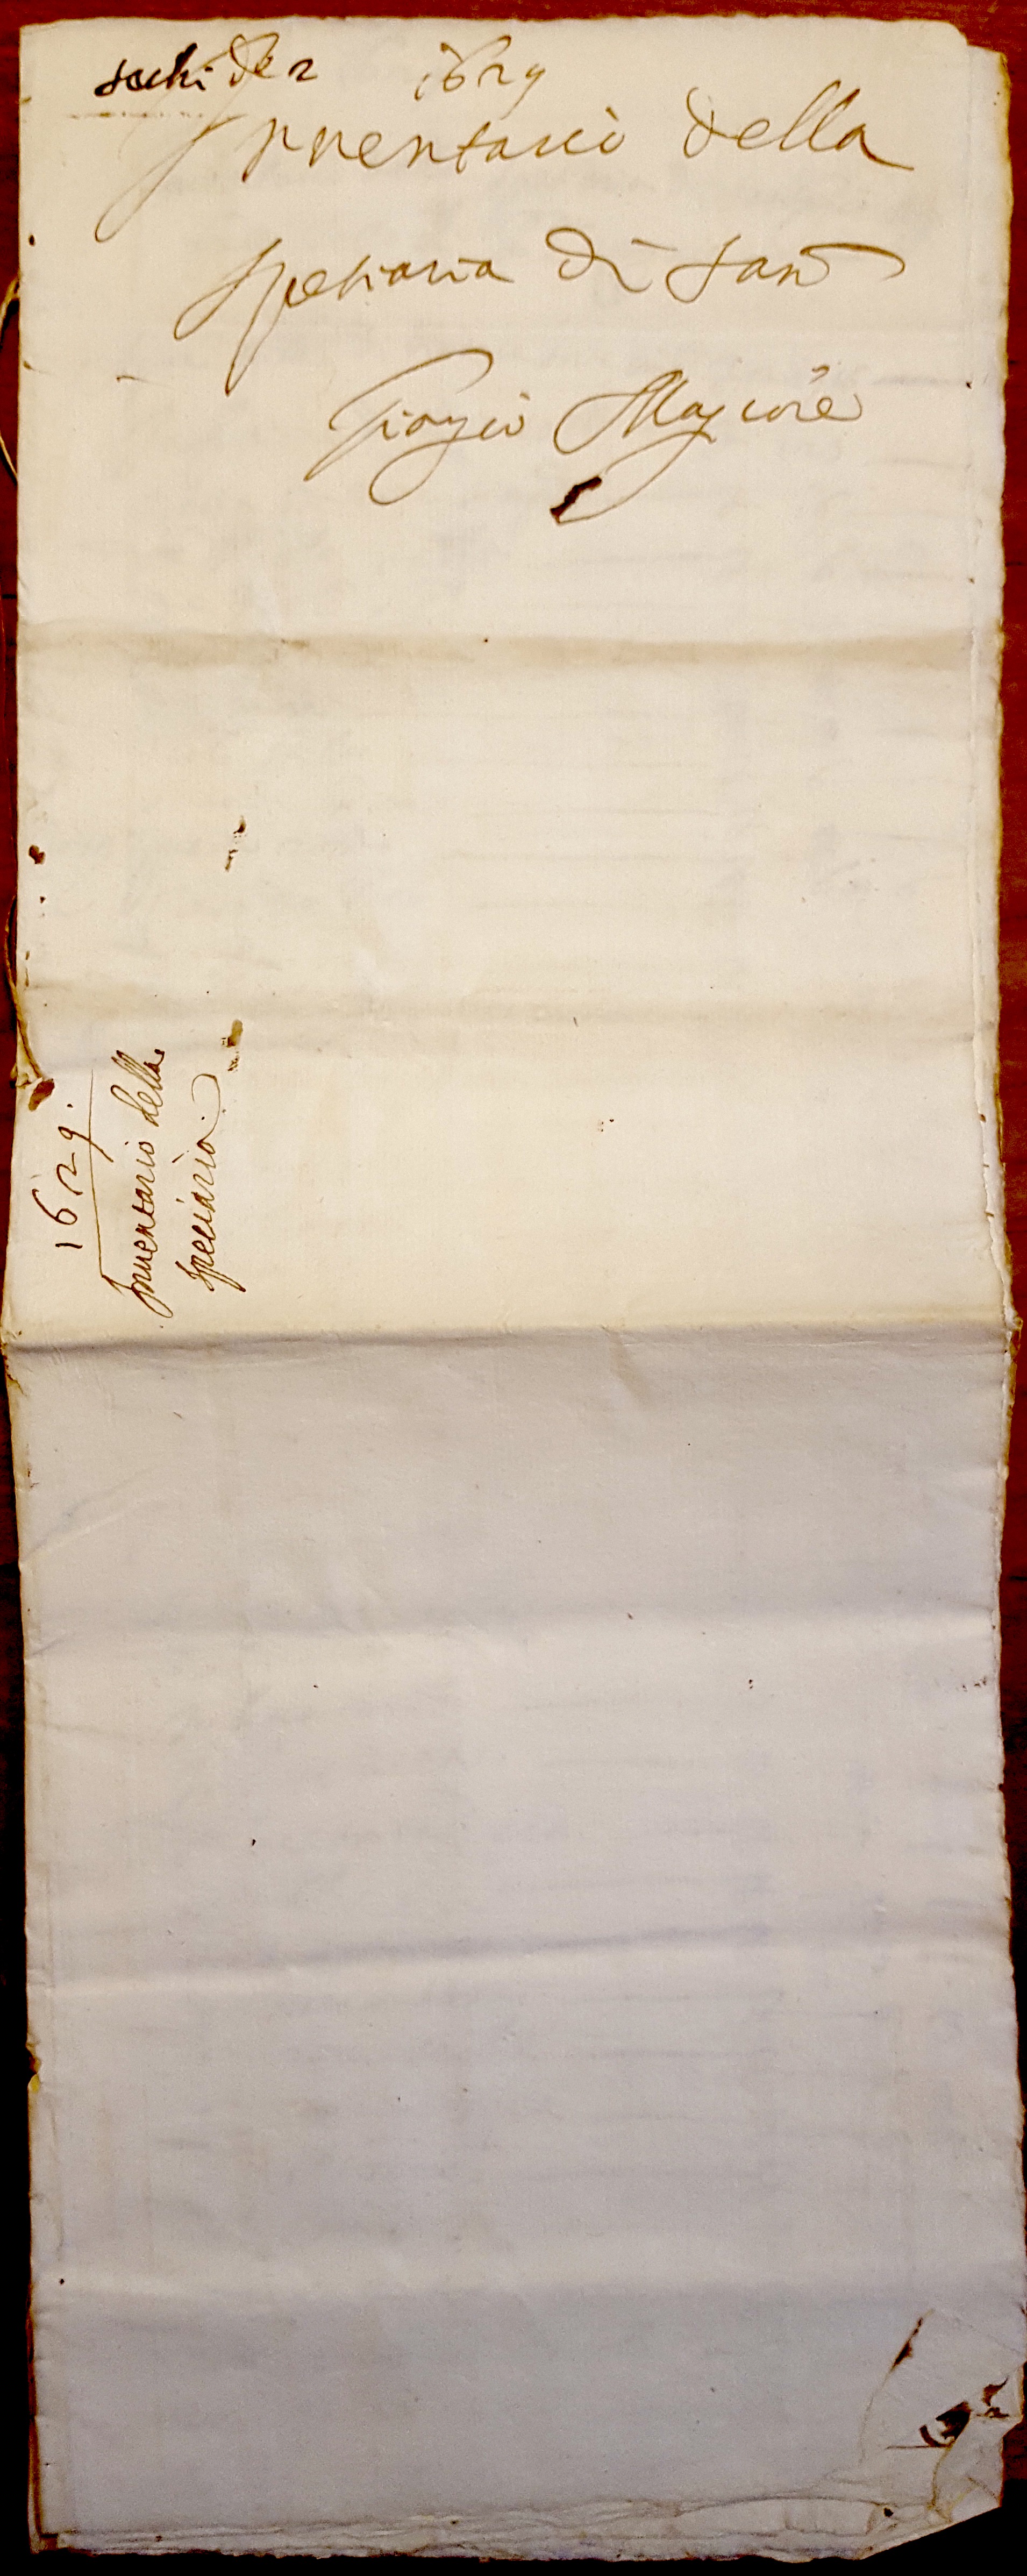 1629
Inventario della
spetiaria di san
Giorgio Magiore
1629.
Inventario della
speciaria.